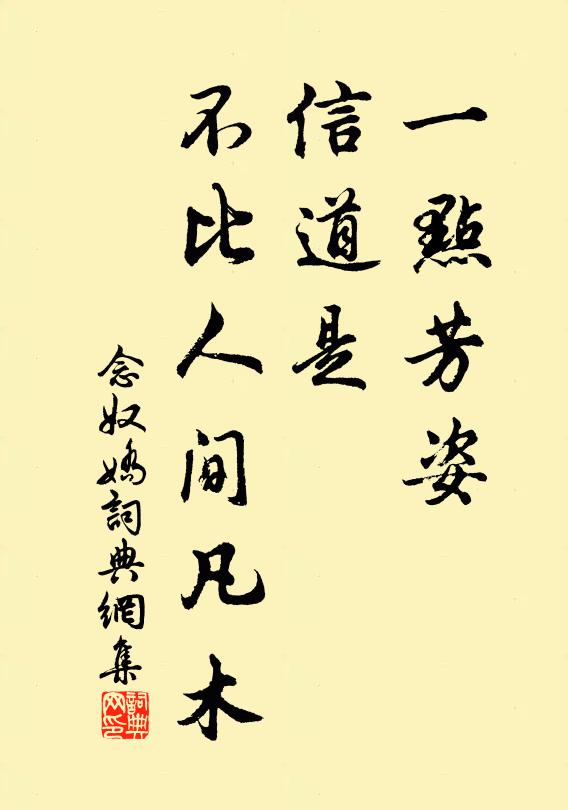 一點芳姿
信道是
不比人间凡木
念奴嬌詞典網集
詞典
网印